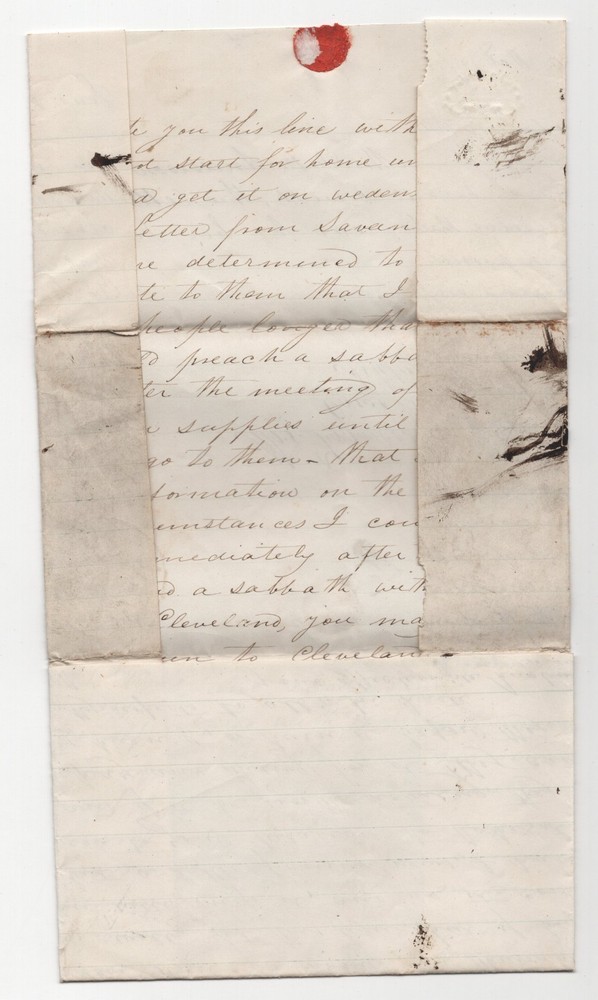 te you this line with
start for home
get it on weden
etter from Savan
re determined to
te to them that I
people longer tha
preach a sabba
ter the meeting of
supplies until
go to them - that
formation on the
umstances I cou
mediately after
a sabbath with
Cleveland, you ma
to Clevelan